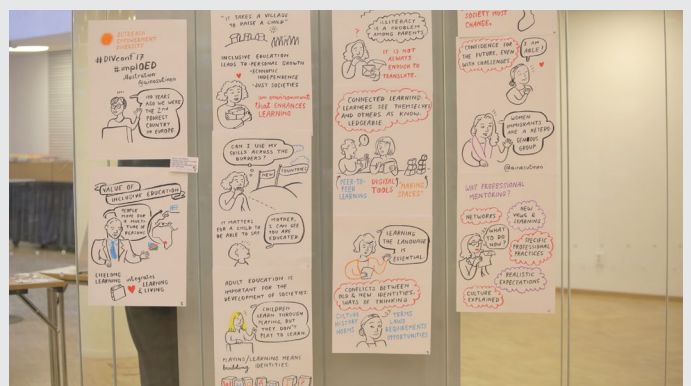 OUTREACH
EMPOWERMENT
DIVERSITY
#DIVConf'17
#ImplOED
illustration
100 YEARS
AGO WE WERE
THE 2nd
POOREST
COUNTRY
IN EUROPE.
VALUE OF
INCLUSIVE EDUCATION
PEOPLE
MOVE FOR
A MULTI-
TUDE OF
REASONS
LIFELONG
LEARNING
integrates
LEARNING
& LIVING
"IT TAKES A VILLAGE
TO RAISE A CHILD"
INCLUSIVE EDUCATION
LEADS TO • PERSONAL GROWTH
• ECONOMIC
INDEPENDENCE
• JUST SOCIETIES
an environment
that ENHANCES
LEARNING
CAN I USE MY
SKILLS ACROSS THE
BORDERS?
NEW
COUNTRY
IT MATTERS
FOR A CHILD TO
BE ABLE TO SAY
MOTHER,
I CAN SEE
YOU ARE
EDUCATED.
ADULT EDUCATION IS
IMPORTANT FOR THE
DEVELOPMENT OF SOCIETIES.
CHILDREN
LEARN THROUGH
PLAYING, BUT
THEY DON'T
PLAY TO LEARN.
PLAYING/LEARNING MEANS
building IDENTITIES.
ILLITERACY
IS A PROBLEM
AMONG PARENTS
?
IT IS NOT
ALWAYS
ENOUGH TO
TRANSLATE.
CONNECTED LEARNING
LEARNERS SEE THEMSELVES
AND OTHERS AS KNOW-
LEDGEABLE.
PEER-TO-
PEER
LEARNING
DIGITAL
TOOLS
"MAKING
SPACES"
LEARNING
THE LANGUAGE
IS
ESSENTIAL.
CONFLICTS BETWEEN
OLD & NEW IDENTITIES,
WAYS OF THINKING
CULTURE
HISTORY
NORMS
TERMS
LAWS
REQUIREMENTS
OPPORTUNITIES
SOCIETY MUST
CHANGE.
CONFIDENCE FOR
THE FUTURE, EVEN
WITH CHALLENGES
I AM
ABLE!
WOMEN
IMMIGRANTS
ARE A HETERO-
GENEOUS
GROUP.
WHY PROFESSIONAL
MENTORING?
NETWORKS
NEW
VIEWS &
LEARNING
WHAT
TO DO
NOW?
SPECIFIC
PROFESSIONAL
PRACTICES
REALISTIC
EXPECTATIONS
CULTURE
EXPLAINED